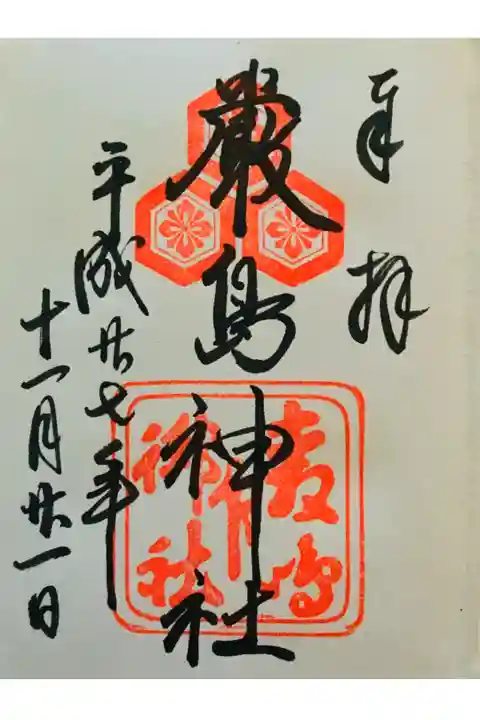 奉拝
厳島神社
平成廿七年
十一月廿一日